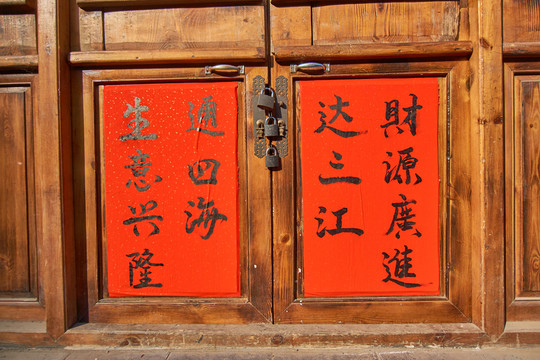 財源廣進
达三江
生意兴隆
通四海